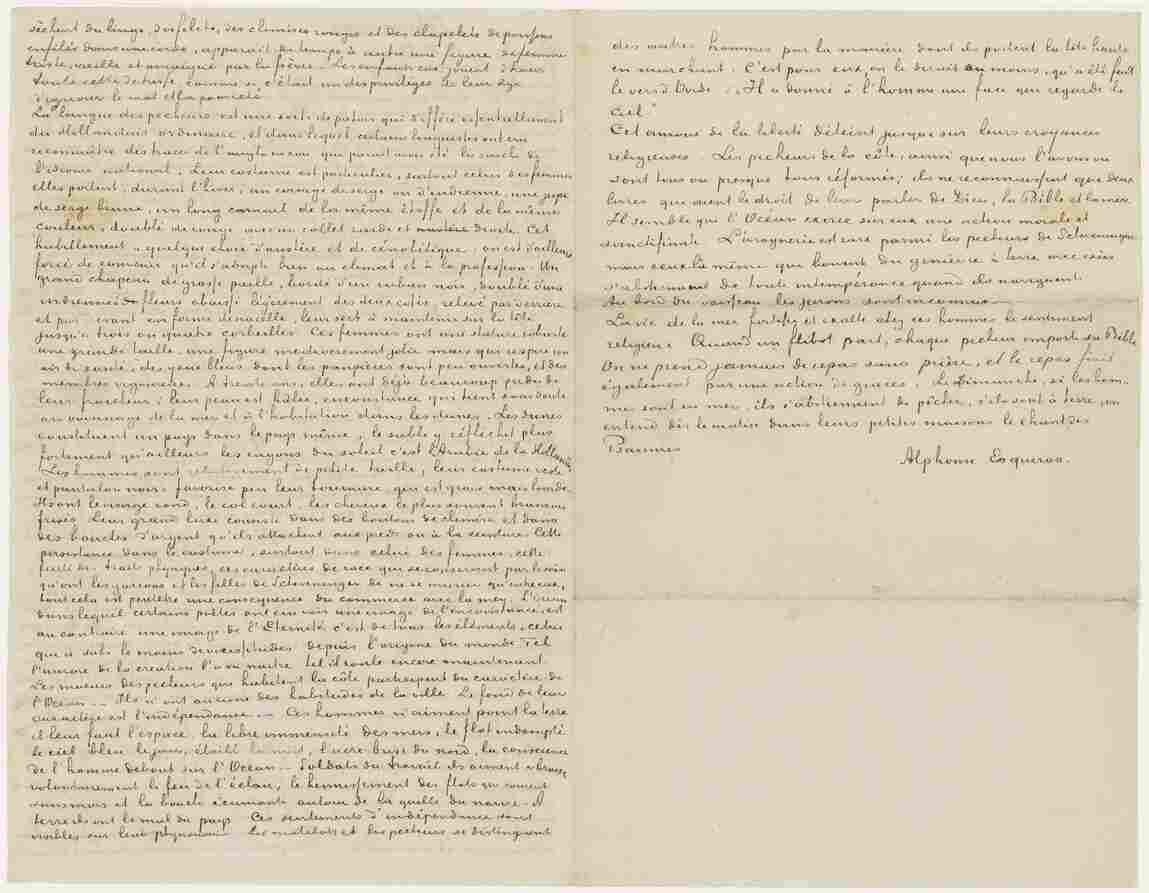 sèchent du linge, des filets, des chemises rouges et des chapelets de poissons
enfilés dans une corde, apparait de temps à autre une figure de femme
triste, vieille et par la fièvre. Les enfants eux jouent à
toute cette detresse comme si c'était un des privilèges de leur âge
d'ignorer le mal et la pauvreté.
La langue des pecheurs est une sorte de patois qui diffère essentiellement
du Hollandais ordinaire, et dans lequel certains linguistes ont cru
reconnaître des traces de l'anglo saxon qui parait avoir été la souche de
l'idiome national. Leur costume est particulier, surtout celui des femmes
elles portent, durant l'hiver, un corsage de serge ou d'indienne, une jupe
de serge brune, un long camail de la même étoffe et de la même
couleur, doublé de rouge avec un collet raide et droite. Cet
habillement a quelque chose d'austère et de cénobitique; on est d'ailleurs
forcé de convenir qu'il s'adapte bien au climat et à la profession. Un
grand chapeau de grosse paille, bordé d'un ruban noir, doublé d'une
indienne à fleurs abaissé légèrement des deux cotés, relevé par derrière
et par devant en forme de nacelle, leur sert à maintenir sur la tête
jusqu'à trois ou quatre corbeilles. Ces femmes ont une stature robuste
une grande taille, une figure médiocrement jolie mais qui respire un
air de santé, des yeux bleus dont les paupières sont peu ouvertes, et des
membres vigoureux. A trente ans, elles ont déjà beaucoup perdu de
leur fraicheur: leur peau est hâlée, circonstance qui tient sans doute
au voisinage de la mer et à l'habitation dans les dunes. Les dunes
constituent un pays dans le pays même; le sable y réfléchit plus
fortement qu'ailleurs les rayons du soleil c'est l'Arabie de la Hollande
Les hommes sont de petite taille, leur costume veste
et pantalon noirs favorise peu leur tournure, qui est grosse mais lourde.
Ils ont le visage rond, le col court, les cheveux le plus souvent bruns ou
frisés. Leur grand luxe consiste dans des boutons de chemise et dans
des boucles d'argent qu'ils attachent aux pieds ou à la ceinture. Cette
persistance dans le costume, surtout dans celui des femmes, cette
fixité des traits physiques, ces caractères de race qui se conservent par le soin
qu'ont les garçons et les filles de Scheveninger de ne se marier qu'entre eux,
tout cela est peutêtre une conséquence du commerce avec la mer. L'Océan
dans lequel certains poëtes ont cru voir une image de l'inconstance, est
au contraire une image de l'Eternité c'est de tous les éléments, celui
qui a subi le moins de vicissitudes depuis l'origine du monde. Tel
l'aurore de la création l'a vu naitre tel il roule encore maintenant
Les moeurs des pecheurs qui habitent la côte participent du caractère de
l'Océan — Ils n'ont aucune des habitudes de la ville. Le fond de leur
caractère est l'indépendance. — Ces hommes n'aiment point la terre
il leur faut l'espace, la libre immensité des mers, le flot indompté
le ciel bleu le jour, étoilé la nuit, l'acre brise du nord, la conscience
de l'homme debout sur l'Océan — Soldats du travail ils aiment à braver
volontairement le feu de l'éclair, le hennissement des flots qui courent
sans mors et la boucle écumante autour de la quille du navire. A
terre ils ont le mal du pays Ces sentiments d'indépendance sont
visibles sur leur physionomie les matelots et les pecheurs se distinguent
des autres hommes par la manière dont ils portent la tête haute
en marchant. C'est pour eux, on le dirait au moins, qu'a été fait
le vers d'Ovide: „Il a donné à l'homme une face qui regarde le
Ciel"
Cet amour de la liberté déteint jusque sur leurs croyances
religieuses. Les pecheurs de la côte, ainsi que nous l'avons vu
sont tous ou presque tous réformés; ils ne reconnaissent que deux
livres qui aient le droit de leur parler de Dieu, la Bible et la mer.
Il semble qui l'Océan exerce sur eux une action morale et
sanctifiante. L'ivrognerie est rare parmi les pecheurs de Scheveningue
mais ceux là même qui boivent du genièvre à terre avec excès
s'abstiennent de toute intempérance quand ils naviguent
Au bord du vaisseau les jurons sont inconnus —
La vie de la mer fortifie et exalte chez ces hommes le sentiment
religieux Quand un flibot part, chaque pecheur emporte sa Bible
On ne prend jamais de repas sans prière, et le repas finit
également par une action de graces. Le Dimanche, si les hom-
mes sont en mer, ils s'abstiennent de pêcher, s'ils sont à terre, on
entend dès le matin dans leurs petites maisons le chant des
Psaumes
Alphonse Esquiros.